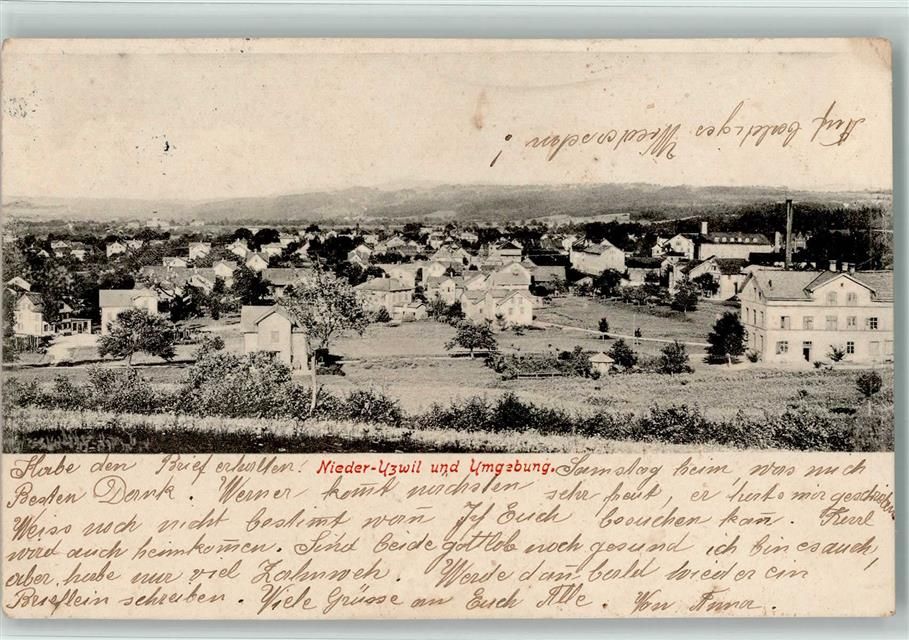 Auf baldiges Wiedersehen !
Habe den Brief erhalten! Nieder-Uzwil und Umgebung. Samstag heim, was mich
Besten Dank. Werner kom̅t nächsten sehr freut, er hats mir geschrieben
Weiss noch nicht bestim̅t wan̅ Ich Euch besuchen kan̅.
wird auch heimkom̅en. Sind beide gottlob noch gesund ich bin es auch,
aber habe nur viel Zahnweh. Werde dan̅ bald wieder ein
Brieflein schreiben. Viele Grüsse an Euch Alle. Von Anna.